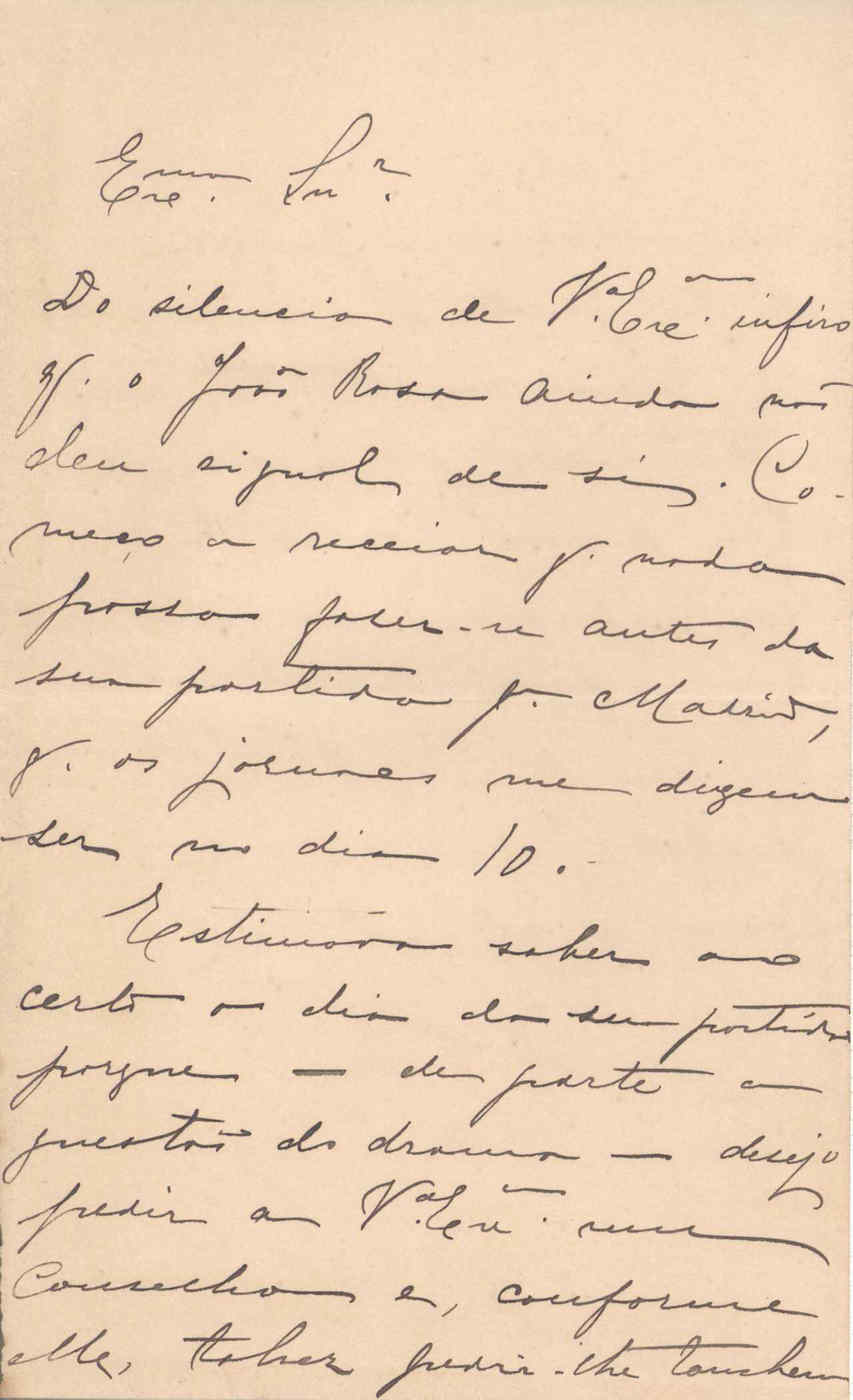 Exmo. Snr.
Do silencio de V.ª Exª. infiro
q. o João Rosa ainda não
deu signal de si. Co-
meço a recciar q. nada
possa fazer-se antes da
sua partida pª. Madrid,
q. os jornaes me dizem
ser no dia 10.
Estimava saber ao
certo o dia da sua partida
porque — de parte a
questão do drama — desejo
pedir a V.ª Exª. um
conselho e, conforme
elle, talvez pedir-lhe tambem